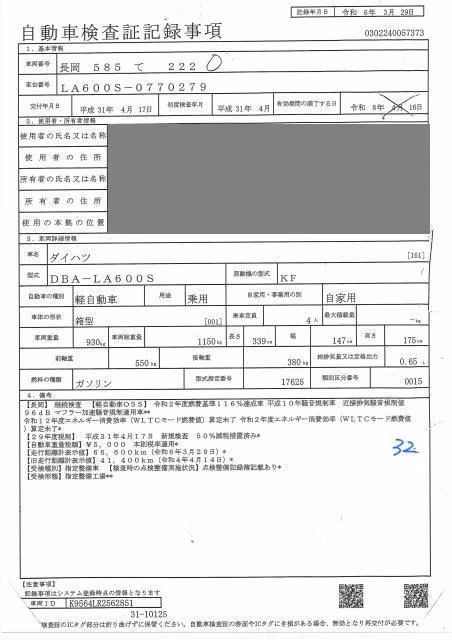 記録年月日 令和 6年 3月 29日
自動車検査証記録事項
0302240057373
1．基本情報
車両番号 長岡 585 て 222
車台番号 LA600S-0770279
交付年月日 平成31年 4月 17日 初度検査年月 平成 31年 4月 有効期間の満了する日 令和 8年 4月 16日
2．使用者・所有者情報
使用者の氏名又は名称
使用者の住所
所有者の氏名又は名称
所有者の住所
使用の本拠の位置
3．車両詳細情報
車名 ダイハツ [161]
型式 DBA-LA600S 原動機の型式 KF
自動車の種別 軽自動車 用途 乗用 自家用・事業用の別 自家用
車体の形状 箱型 [001] 乗車定員 4人 最大積載量 -kg
車両重量 930kg 車両総重量 1150kg 長さ 339cm 幅 147cm 高さ 175cm
前軸重 550kg 後軸重 380kg 総排気量又は定格出力 0.65 L
燃料の種類 ガソリン 型式指定番号 17625 類別区分番号 0015
4．備考
[長岡] 継続検査 【軽自動車OSS】 令和2年度燃費基準116%達成車 平成10年騒音規制車 近接排気騒音規制値
96dB マフラー加速騒音規制適用車**
令和12年度エネルギー消費効率（WLTCモード燃費値）算定未了 令和2年度エネルギー消費効率（WLTCモード燃費値
）算定未了*
【29年度税制】 平成31年4月17日 新規検査 50%減税措置済み*
【自動車重量税額】¥5，000 本則税率適用*
【走行距離計表示値】66，600km（令和6年3月29日）*
【旧走行距離計表示値】41，400km（令和4年4月14日）*
【受検種別】指定整備車 【検査時の点検整備実施状況】点検整備記録簿記載あり*
【受検形態】指定整備工場**
32
【注意事項】
記録事項はシステム登録時点の情報となります
車両ID K9564LR2562851
31-10125
検査証のICタグ部分は折り曲げずに保管ください。自動車検査証の券面やICタグにき損がある場合、無効となり再交付が必要です。